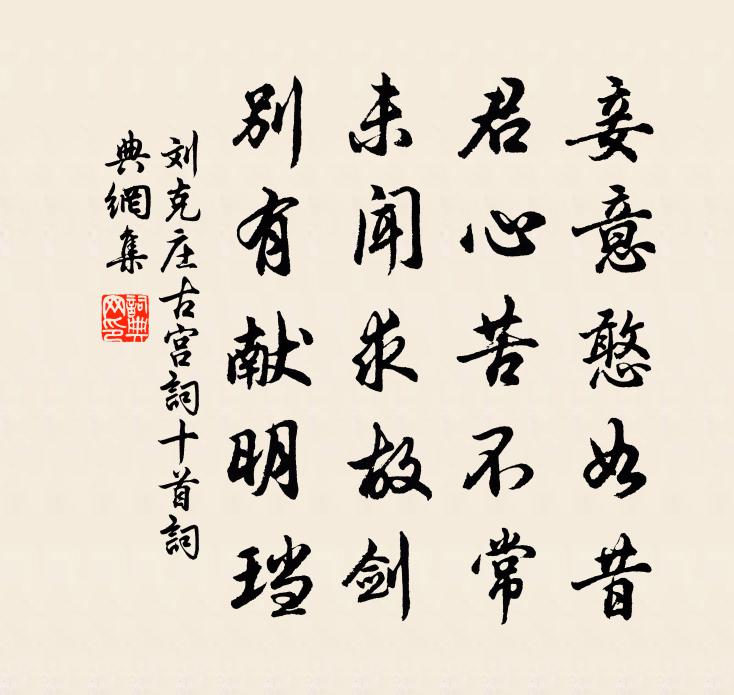 妾意憨如昔
君心苦不常
未闻求故剑
别有献明珰
刘克庄古宫詞十首詞
典網集
詞典网印